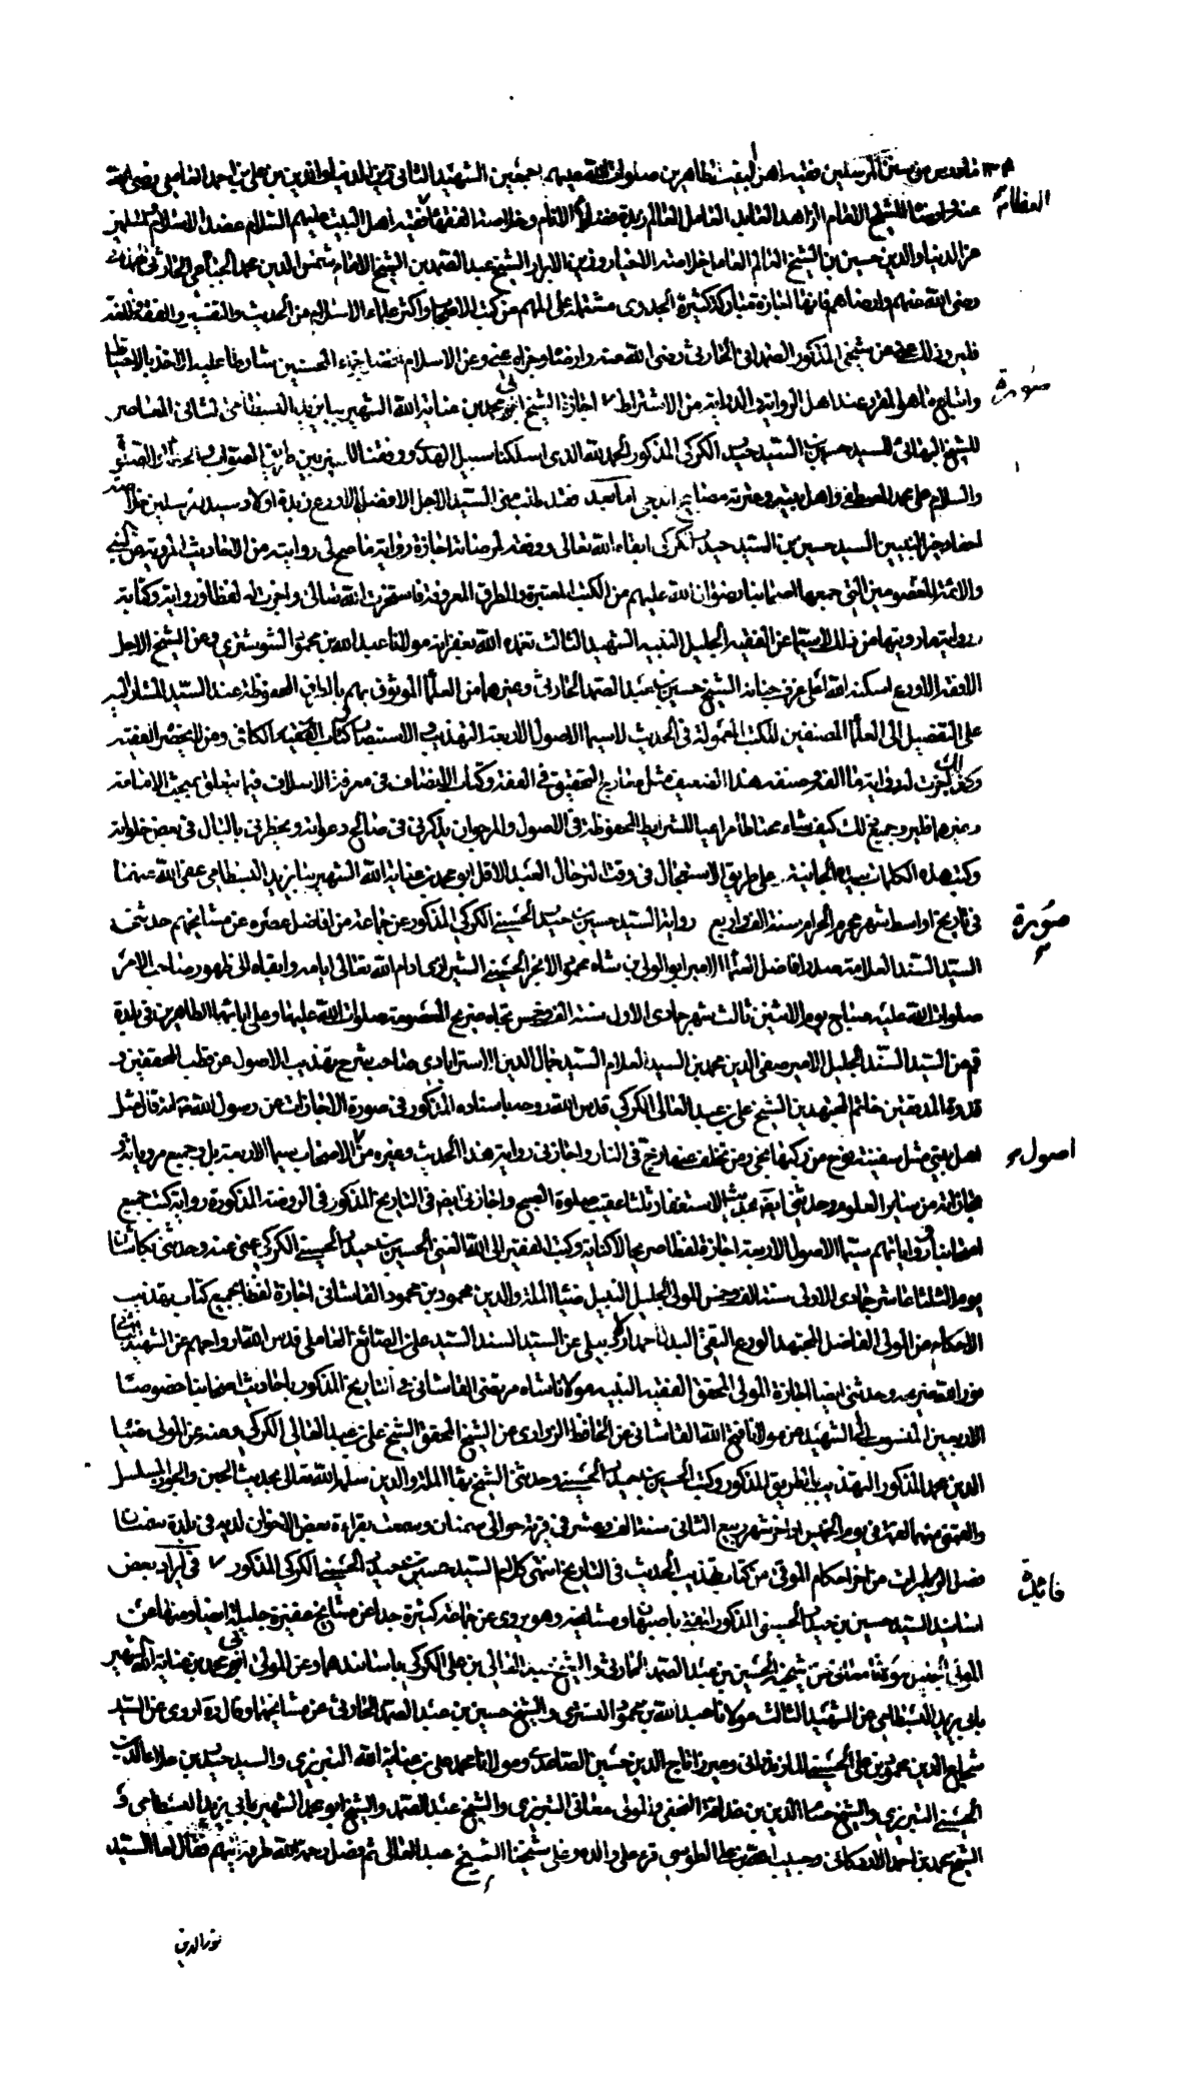 ما اندرس من سنن المرسلين فقيه اهل البيت الطاهرين صلوات الله عليهم اجمعين الشهيد الثاني زين الملة والدين بن علي بن احمد العاملي رضي الله
العظام
عنه وارضاه للشيخ الامام الزاهد العابد العامل العالم زبدة فضلاء الانام وخلاصة الفقهاء فقيه اهل البيت عليهم السلام عضد الاسلام والمسلمين
عز الدنيا والدين حسين بن الشيخ العالم العامل خلاصة الاخيار وزين الابرار الشيخ عبد الصمد بن الشيخ الامام شمس الدين محمد الجباعي الحارثي الهمداني
رضي الله عنهم وارضاهم فانها اجازة مباركة كثيرة الجدوى مشتملة على المهم من كتب الاصحاب واكثر علماء الاسلام من الحديث والتفسير والفقه واللغة
فليرو ذلك عني عن شيخي المذكور الهمداني الحارثي رضي الله عنه وارضاه وجزاه عني وعن الاسلام افضل جزاء المحسنين مشارطا عليه الاخذ بالاحتياط
صورة
واتباع ما هو المقرر عند اهل الرواية والدراية من الاشتراط اجازة الشيخ ابي محمد بن عناية الله الشهير ببايزيد البسطامي الثاني المعاصر
للشيخ البهائي للسيد حسين بن السيد حيدر الكركي المذكور الحمد لله الذي اسلكنا سبيل الهدى ووفقنا
والسلام على محمد المصطفى واهل بيته وعترته مصابيح الدجى اما بعد فقد طلب مني السيد الاجل الافضل الاورع زبدة اولاد سيد المرسلين خلاصة
احفاد خير النبيين السيد حسين بن السيد حيدر الكركي ابقاه الله تعالى ووفقه لمرضاته اجازة رواية ما صح لي روايته من الاحاديث المروية عن النبي
والائمة المعصومين التي جمعها اصحابنا رضوان الله عليهم من الكتب المعتبرة والطرق المعروفة فاستخرت الله تعالى واجزت له لفظا وروايته وكتابة
رواية ما رويتها من ذلك لا سيما عن الفقيه الجليل النبيه الشهيد الثالث تغمده الله بغفرانه مولانا عبد الله بن محمود الشوشتري وعن الشيخ الاجل
الافقه الاورع اسكنه الله اعلى غرف جنانه الشيخ حسين بن عبد الصمد الحارثي وغيرهما من العلماء الموثوق بهم بالطرق المحفوظة عند السيد المشار اليه
على التفصيل الى العلماء المصنفين للكتب المعمولة في الحديث لاسيما الاصول الاربعة التهذيب والاستبصار وكتاب الكافي ومن لا يحضره الفقيه
وكذلك اجزت له رواية ما الفه وصنفه هذا الضعيف مثل معارج التحقيق في الفقه وكتاب الانصاف في معرفة الاسلاف فيما يتعلق بمبحث الامامة
وغيرهما فليرو جميع ذلك كيف شاء محتاطا مراعيا للشرايط المحفوظة في الاصول والمرجو ان يذكرني في صالح دعواته ويخطرني بالبال في بعض خلواته
وكتب هذه الكلمات بيده الجانية على طريق الاستعجال في وقت الترحال العبد الاقل ابو محمد بن عناية الله الشهير ببايزيد البسطامي عفى الله عنهما
صورة
في تاريخ اواسط شهر محرم الحرام سنة الف واربع رواية السيد حسين بن حيدر الحسيني الكركي المذكور عن جماعة من افاضل عصره عن مشايخهم حدثني
السيد السند العلامة افاضل العلماء الامير ابو الولي بن شاه محمود الانجو الحسيني الشيرازي ادام الله تعالى ايامه وابقاه الى ظهور صاحب الامر
صلوات الله عليه صباح يوم الاثنين ثالث شهر جمادى الاول سنة الف وخمس تجاه ضريح المعصومة صلوات الله عليها وعلى ابائها الطاهرين في بلدة
قم عن السيد السند الجليل الامير صفي الدين محمد بن السيد العلام السيد جمال الدين الاسترابادي صاحب شرح تهذيب الاصول عن قطب المحققين و
قدوة المدققين خاتم المجتهدين الشيخ علي بن عبد العالي الكركي قدس الله روحه باسناده المذكور في صورة الاجازات عن رسول الله ص انه قال مثل
اصول
اهل بيتي مثل سفينة نوح من ركبها نجى ومن تخلف عنها زخ في النار واجازني رواية هذا الحديث وغيره من الاصحاب سيما الاربعة بل وجميع مروياته و
مجازاته من ساير العلوم وحدثني ايضا بحديث الاستغفار ثلثا عقيب صلوة الصبح واجازني ايضا في التاريخ المذكور في الروضة المذكورة رواية كتب جميع
اصحابنا ورواياتهم سيما الاصول الاربعة اجازة لفظا صريحا لا كناية وكتب الفقير الى الله الغني الحسين بن حيدر الحسيني الكركي عفي عنه وحدثني بكاشان
يوم الثلثا عاشر جمادى الاولى سنة الف وخمس المولى الجليل النبيل ضياء الملة والدين محمود بن محمود القاشاني اجازة لفظا بجميع كتاب تهذيب
الاحكام عن المولى الفاضل المجتهد الورع التقي البدل احمد اردبيلي عن السيد السند السيد علي الصائغ العاملي قدس الله ارواحهم عن الشهيد الثاني
نور الله ضريحه وحدثني ايضا اجازة المولى المحقق الفقيه النبيه مولانا شاه مرتضى القاشاني في التاريخ المذكور باحاديث اصحابنا خصوصا
الاربعين المنسوب الى الشهيد عن مولانا فتح الله القاشاني عن الحافظ الزواري عن الشيخ المحقق الشيخ علي بن عبد العالي الكركي وعنه عن المولى ضياء
الدين محمد المذكور التهذيب بالطريق المذكور وكتب الحسين بن حيدر الحسيني وحدثني الشيخ بهاء الملة والدين سلمه الله تعالى بحديث الجبن والجوز المسلسل
يوم الخميس اواخر شهر ربيع الثاني سنة الف وعشر في قرية حوالي سمنان وسمعت بقراءة بعض الاخوان لديه في بلدة سمنان
فائدة
من اخر احكام الموقى من كتاب تهذيب الحديث في التاريخ انتهى كلام السيد حسين بن حيدر الحسيني الكركي المذكور في ايراد بعض
اسانيد السيد حسين بن حيدر الحسيني المذكور ومشايخه وهو يروي عن جماعة كثيرة جدا عن مشايخ غفيرة جليلة ايضا ومنها عن
المولى عن شيخيه الحسين بن عبد الصمد الحارثي والشيخ عبد العالي بن علي الكركي باسانيدهما وعن المولى ابي محمد بن عناية الله الشهير
ببايزيد البسطامي عن الشهيد الثالث مولانا عبد الله بن محمود التستري والشيخ حسين بن عبد الصمد الحارثي عن مشايخهما وقال ره اروي عن السيد
شجاع الدين محمود بن علي الحسيني المازندراني وميرزا تاج الدين حسين الصاعدي ومولانا محمد علي بن عناية الله التبريزي والسيد حيدر بن علاء الدين
الحسيني التبريزي والشيخ ضياء الدين بن والمولى معاني التبريزي والشيخ عبد الصمد والشيخ ابو محمد الشهير ببايزيد البسطامي و
الشيخ محمد بن احمد الاردكاني وحبيب الله بن علي الطوسي قرء علي والده وعلى شيخنا الشيخ عبد العالي ثم فصل رحمه الله طرقه اليهم فقال اما السيد
نور الدين